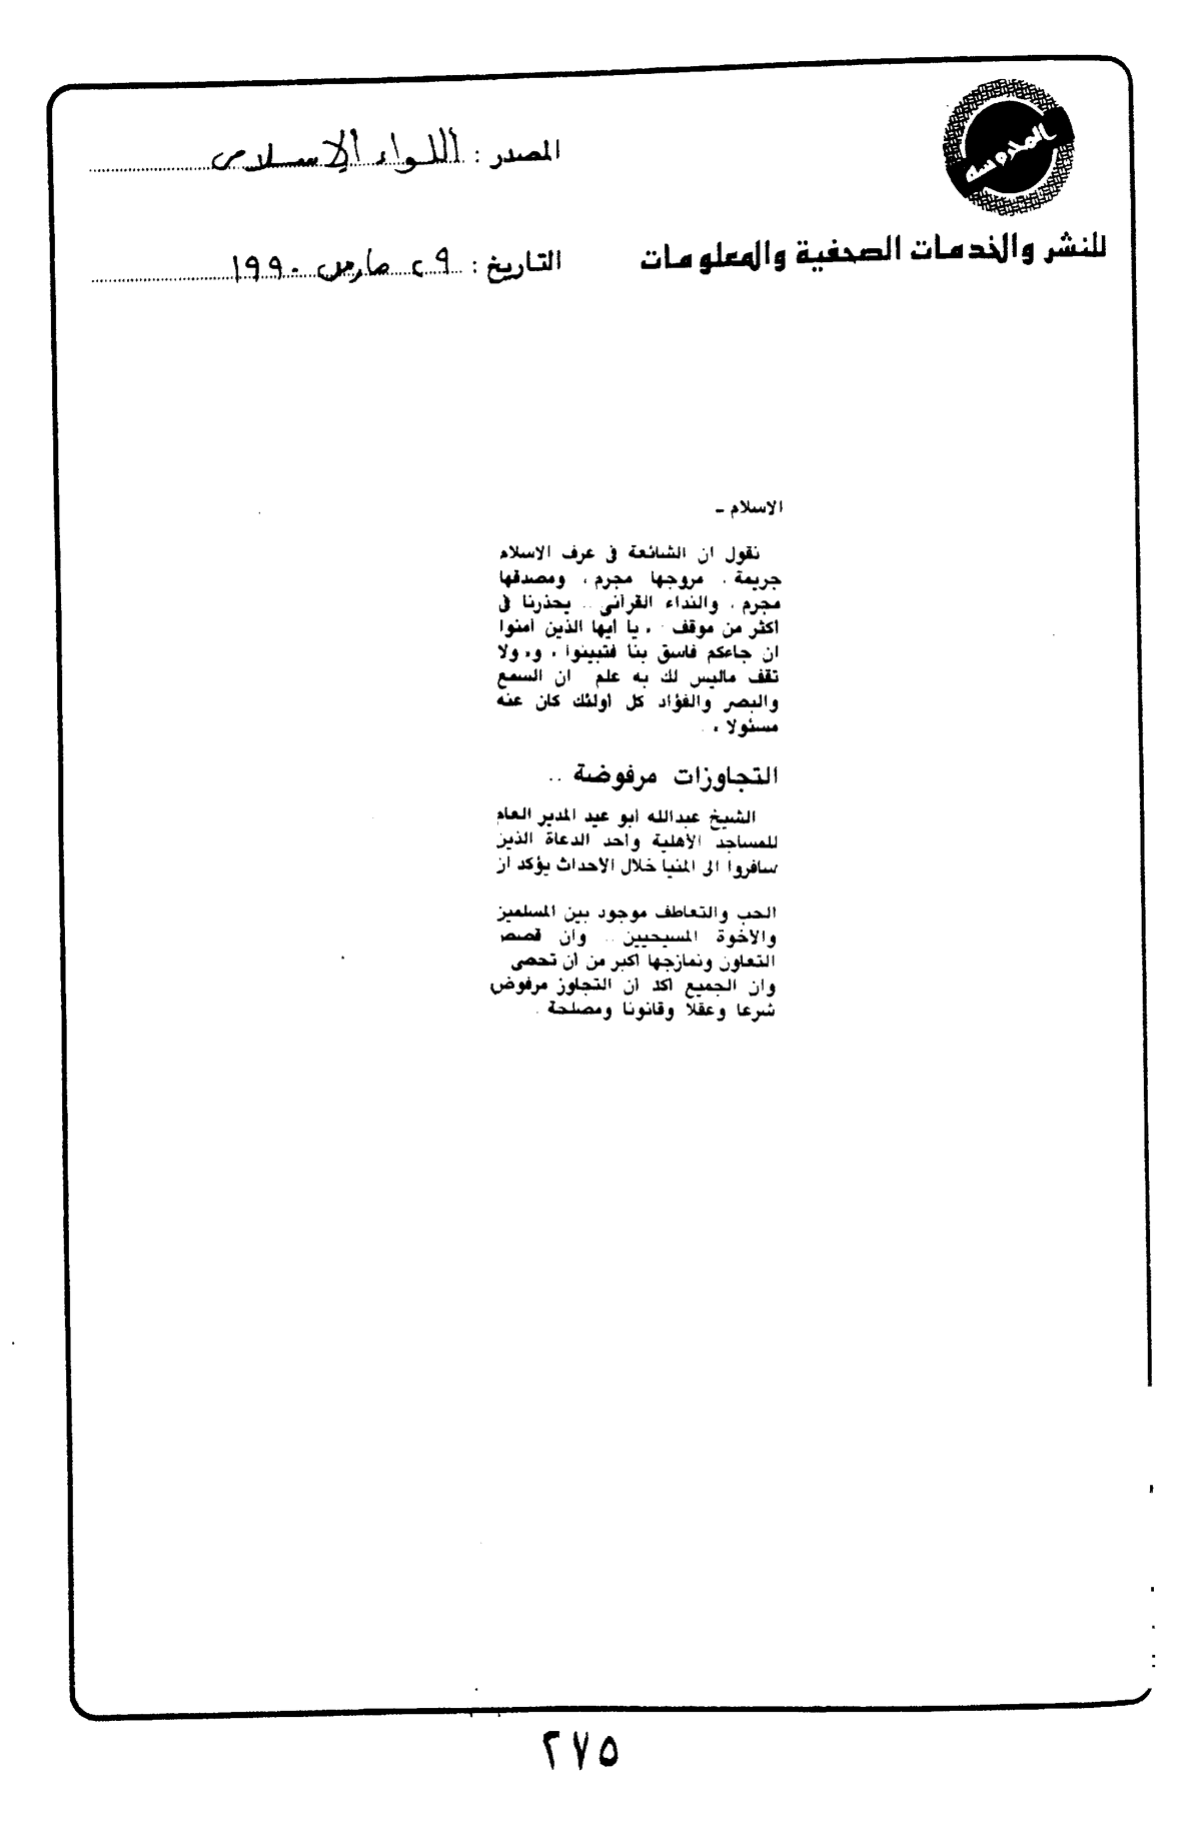 المحروسه
المصدر : اللواء الإسلامى
للنشر والخدمات الصحفية والمعلومات
التاريخ : ٢٩ مارس ١٩٩٠
الاسلام ـ
نقول ان الشائعة فى عرف الاسلام
جريمة ، مروجها مجرم ، ومصدقها
مجرم ، والنداء القرآنى .. يحذرنا فى
أكثر من موقف « يا أيها الذين آمنوا
ان جاءكم فاسق بنبأ فتبينوا » و« ولا
تقف ماليس لك به علم ان السمع
والبصر والفؤاد كل أولئك كان عنه
مسئولا »
التجاوزات مرفوضة ..
الشيخ عبدالله ابو عيد المدير العام
للمساجد الأهلية وأحد الدعاة الذين
سافروا الى المنيا خلال الأحداث يؤكد ان
الحب والتعاطف موجود بين المسلمين
والاخوة المسيحيين .. وأن قصص
التعاون ونمازجها أكبر من أن تحصى
وان الجميع أكد أن التجاوز مرفوض
شرعا وعقلا وقانونا ومصلحة .
٢٧٥